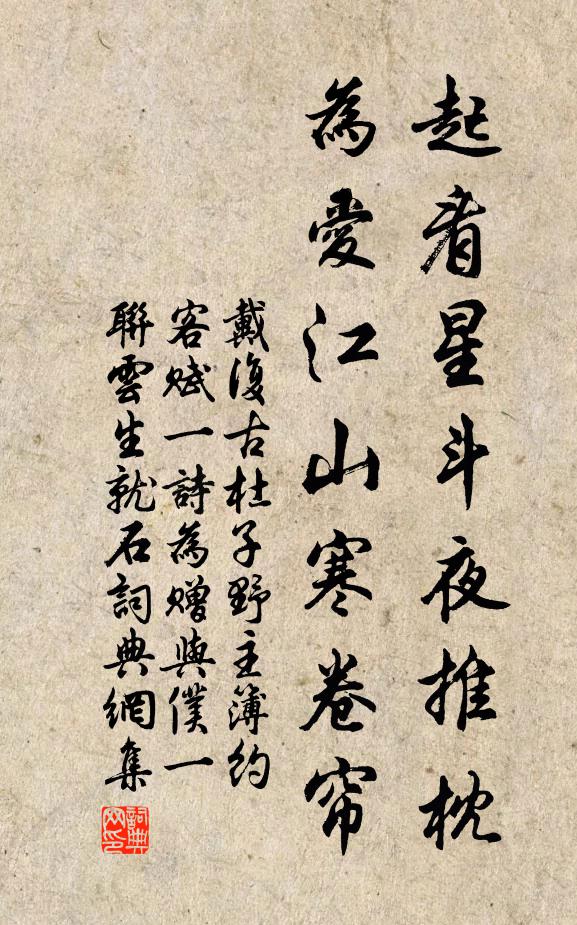 起看星斗夜推枕
為愛江山寒卷帘
戴復古杜子野主簿約
客賦一詩為贈與僕一
聯雲生就石詞典網集
詞典网印